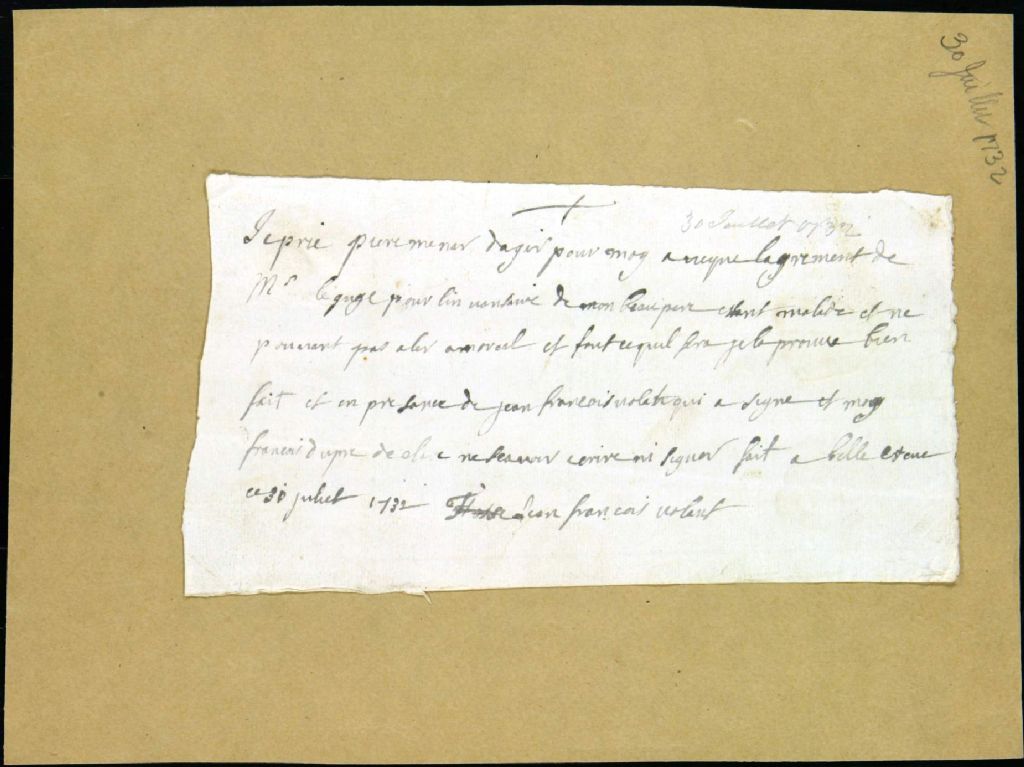 30 Juillet 1732
30 Juillet 1732
Je prie piere menar dagir pour moy avecque lagrement de
Mr le guge pour linvantaire de mon beaupere etant malade et ne
pouvant pas aler a moreal et tout ce quil fera je la prouve bien
fait et en presance de jean francois volant qui a signe et moy
francois dupre declare ne scavoir ecrire ni signer fait a belle
ce 30 juliet 1732 jean francois volant